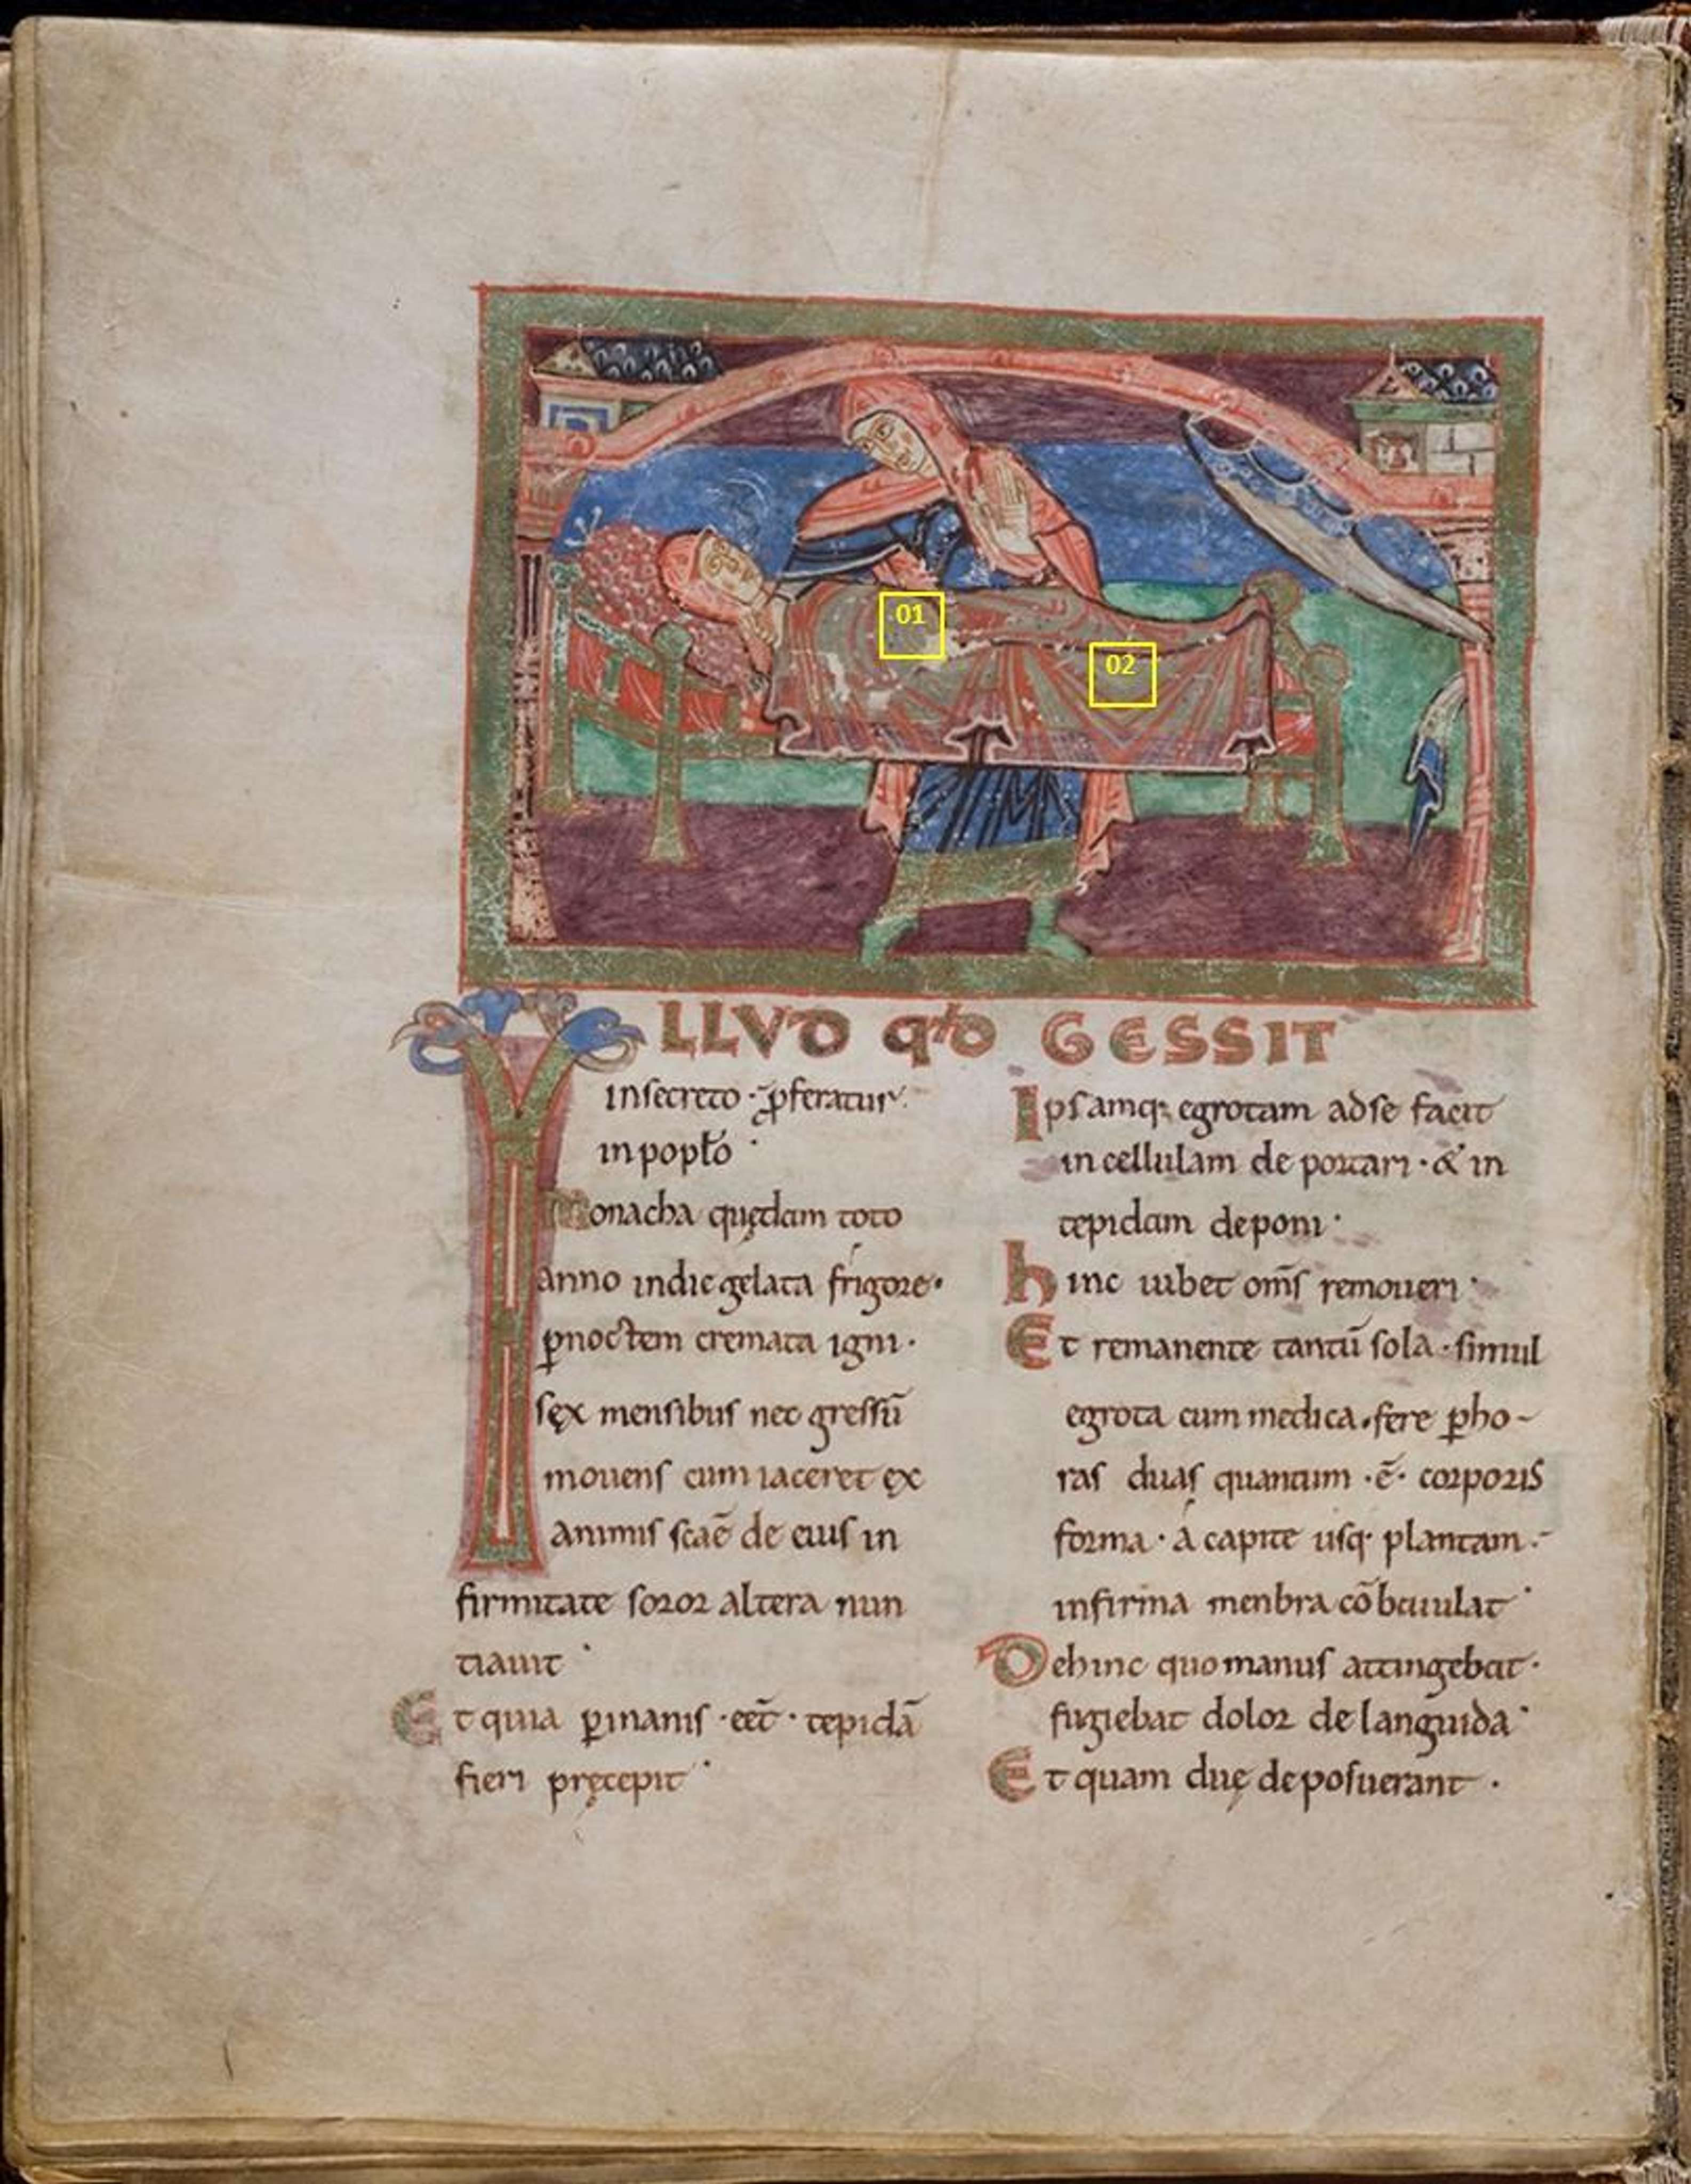 01
02
YLLVD qđo GESSIT
in secreto · p̄feratur
in popł̄o ·
Monacha quędam toto
anno indie gelata frigore ·
ꝑnoctem cremata igni ·
sęx mensibus nec gressū
mouens cum iaceret ex
animis sc̄ae de eius in
firmitate soror altera nun
tiauit ·
Et quia ꝑ inanis · eēt · tepidā
fieri pręcepit ·
Ipsamq; egrotam ad se facit
in cellulam de portari · & in
tepidam deponi ·
hinc iubet om̄s remoueri ·
Et remanente tantū sola · simul
egrota cum medica · fere ꝑ ho-
ras duas quantum · ē · corporis
forma · á capite usq; plantam ·
infirma menbra cō baiulat ·
Dehinc quo manus attingebat ·
fugiebat dolor de languida ·
Et quam duę deposuerant ·